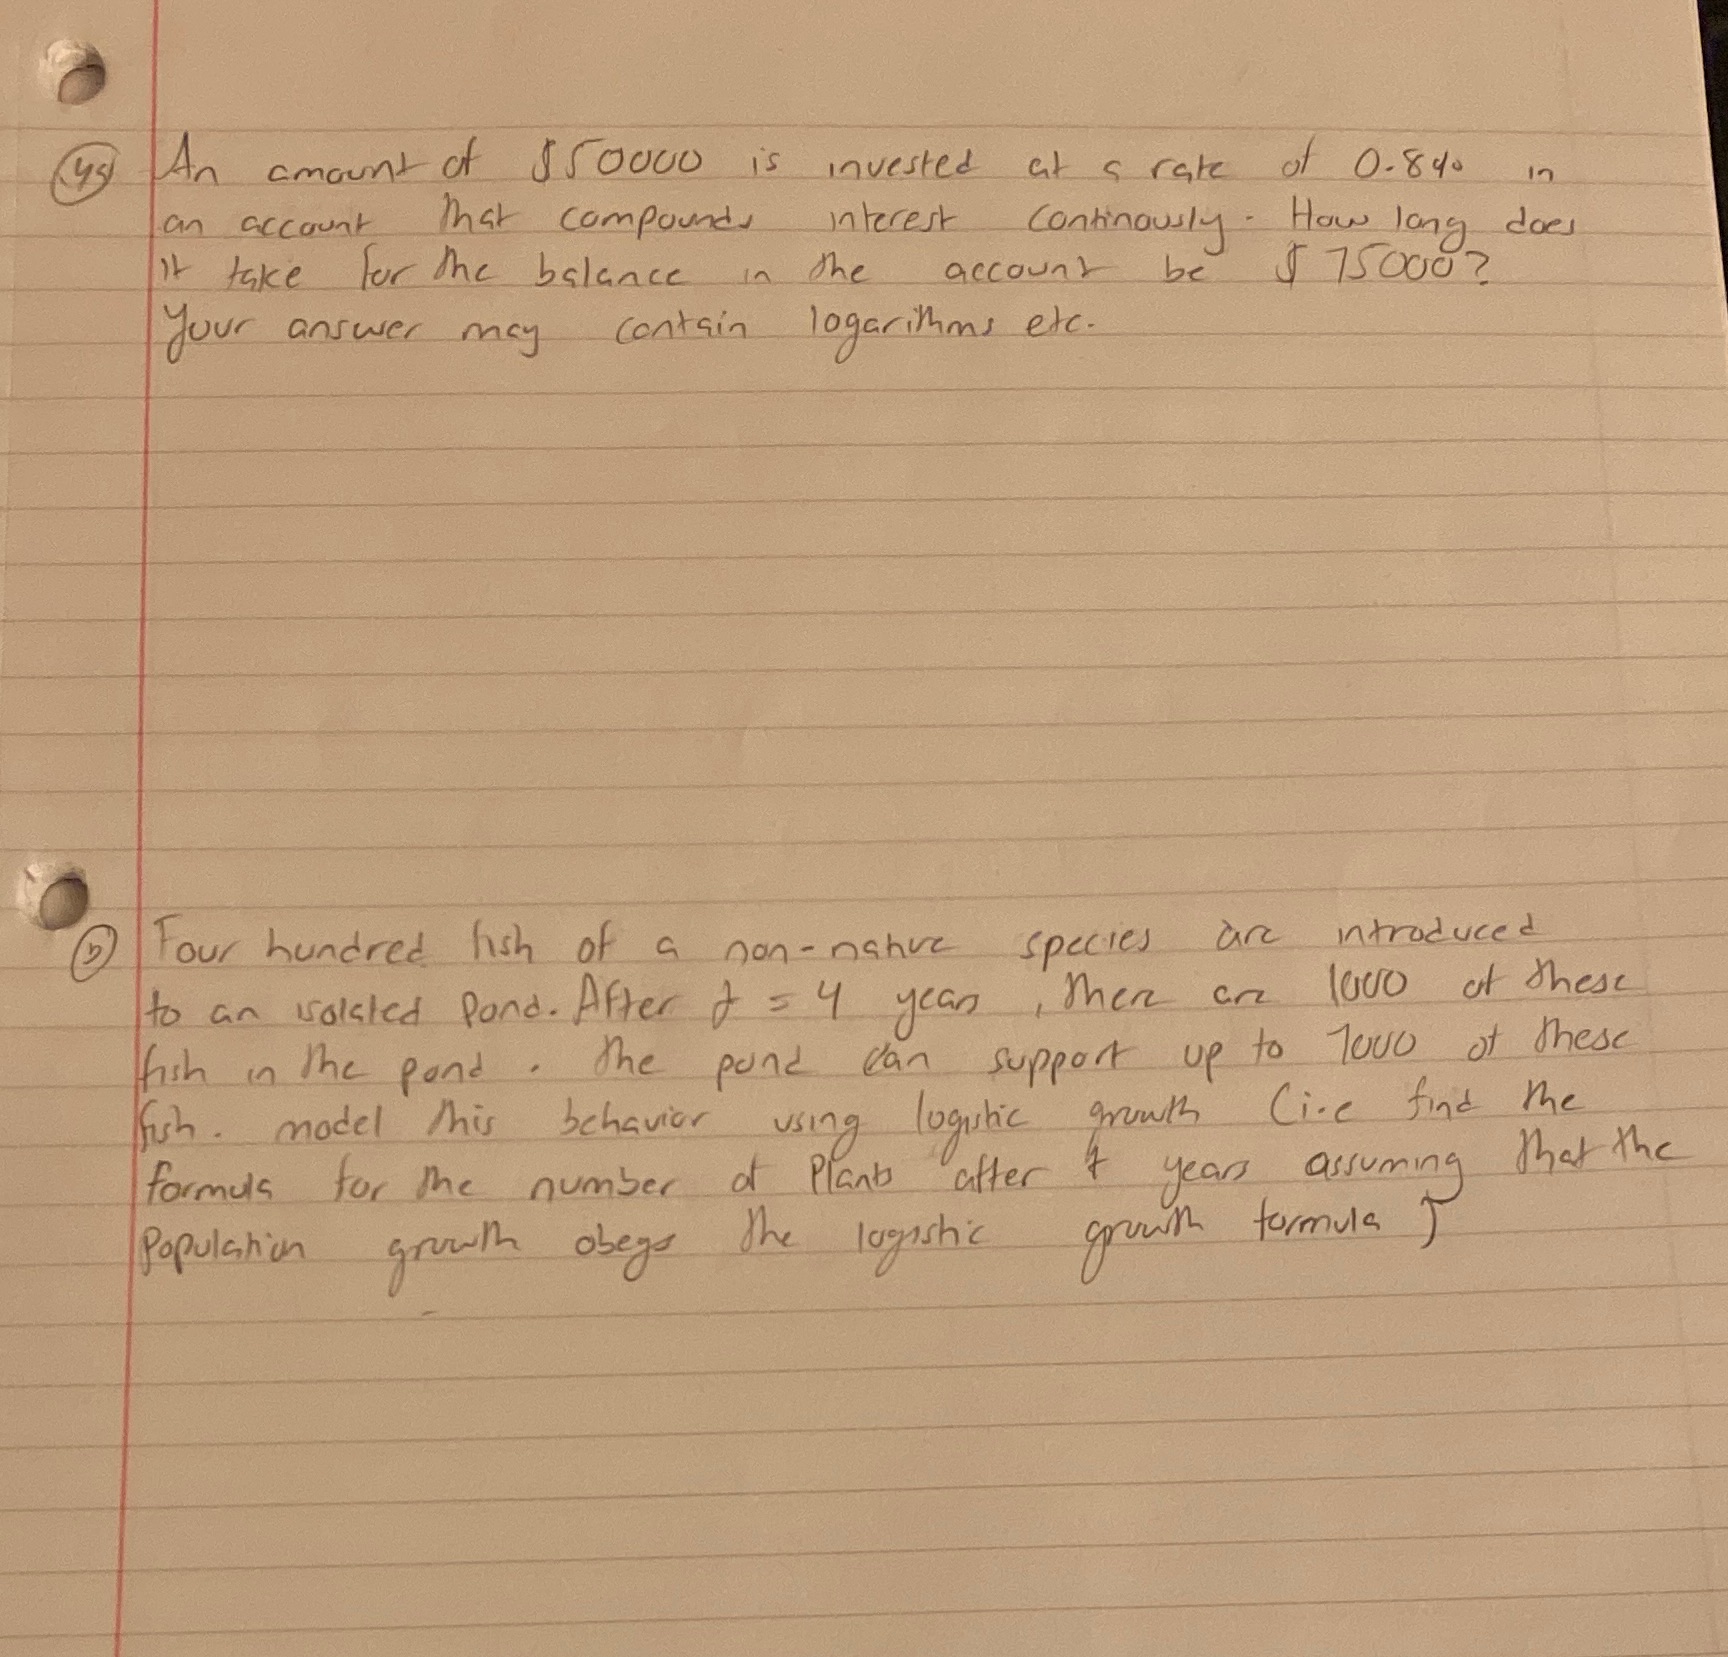 4a An amount of $50000 is invested at a rate of 0.8% in
an account that compounds interest continously. How long does
it take for the balance in the account be $75000?
Your answer may contain logarithms etc.
b Four hundred fish of a non-native species are introduced
to an isolated pond. After t = 4 years, there are 1000 of these
fish in the pond. the pond can support up to 7000 of these
fish. model this behavior using logistic growth (i.e find the
formula for the number of Plants after t years assuming that the
Population growth obeys the logistic growth formula)